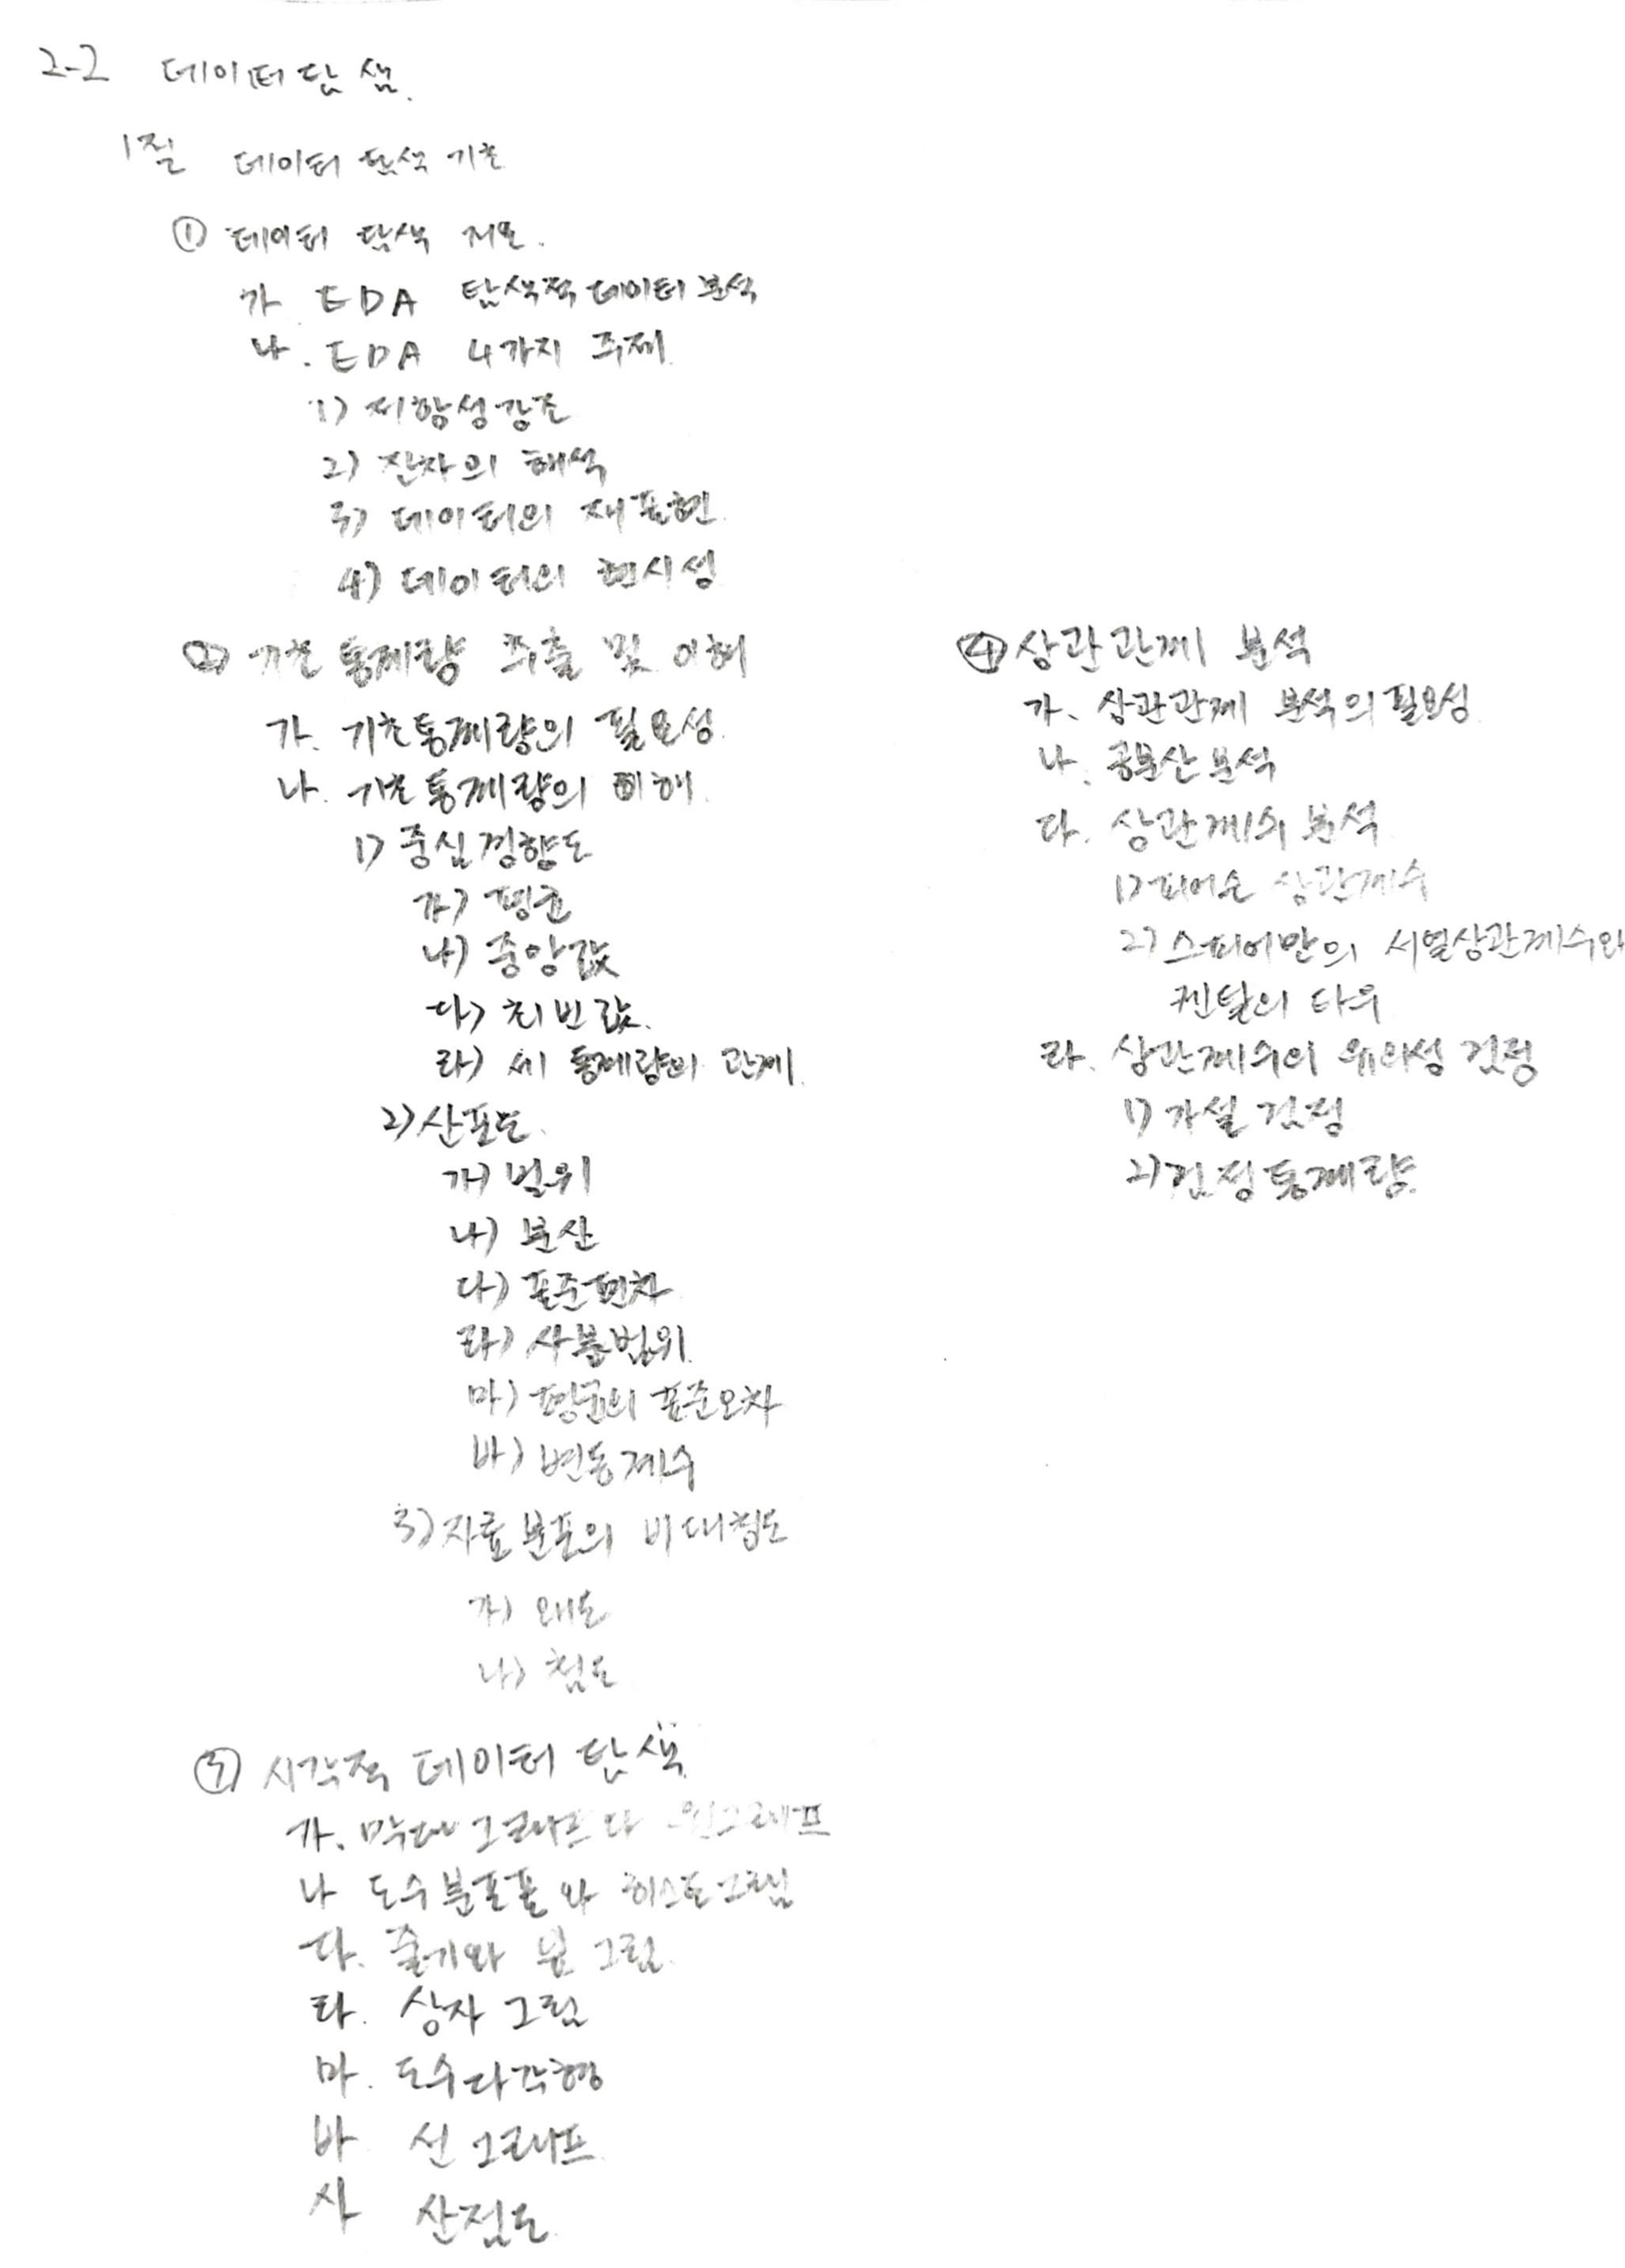 2-2 데이터 탐색.
1절 데이터 탐색 기초
① 데이터 탐색 개요.
가 EDA 탐색적 데이터 분석
나. EDA 4가지 주제
1) 저항성강조
2) 잔차의 해석
3) 데이터의 재표현
4) 데이터의 현시성
② 기초 통계량 추출 및 이해
가. 기초통계량의 필요성
나. 기초통계량의 이해.
1) 중심경향도
가) 평균
나) 중앙값
다) 최빈값.
라) 세 통계량의 관계.
2) 산포도.
가) 범위
나) 분산
다) 표준편차
라) 사분범위.
마) 평균의 표준오차
바) 변동계수
3) 자료분포의 비대칭도
가) 왜도
나) 첨도
③ 시각적 데이터 탐색
가. 막대그래프과 원그래프
나 도수분포표와 히스토그램
다. 줄기와 잎 그림.
라. 상자 그림
마. 도수다각형
바 선그래프
사 산점도
④ 상관관계 분석
가. 상관관계 분석의 필요성
나. 공분산 분석
다. 상관계수 분석
1) 피어슨 상관계수
2) 스피어만의 서열상관계수와
켄달의 타우
라. 상관계수의 유의성 검정
1) 가설 검정
2) 검정통계량.